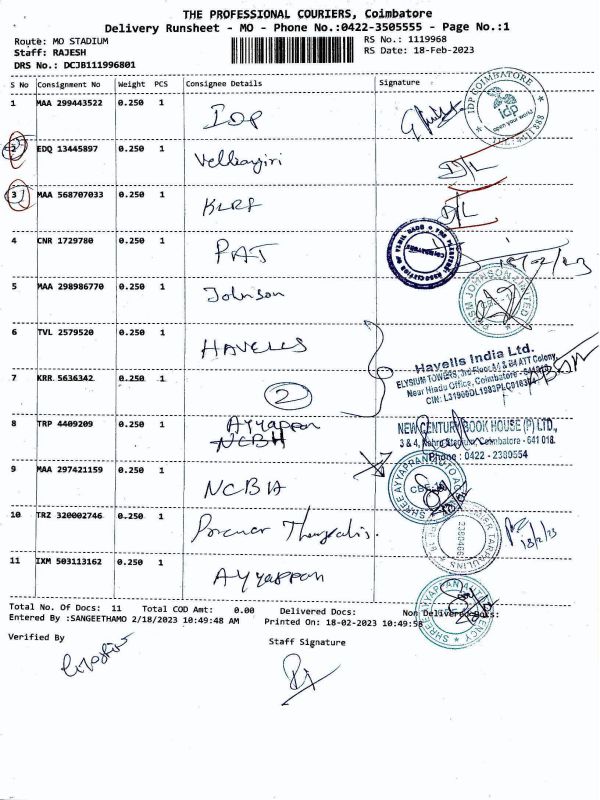 THE PROFESSIONAL COURIERS, Coimbatore
Delivery Runsheet - MO - Phone No.:0422-3505555 - Page No.:1
Route: MO STADIUM
RS No.: 1119968
Staff: RAJESH
RS Date: 18-Feb-2023
DRS No.: DCJB111996801
S No Consignment No Weight PCS Consignee Details Signature
1 MAA 299443522 0.250 1 IDP
IDP COIMBATORE
idp
open your world
2 EDQ 13445897 0.250 1 Velliangiri D/L
3 MAA 568707033 0.250 1 KLRF D/L
4 CNR 1729780 0.250 1 PAT
COIMBATORE
5 MAA 298986770 0.250 1 Johnson
6 TVL 2579520 0.250 1 HAVELLS
Havells India Ltd.
ELYSIUM TOWERS, 3rd Floor
Near Hindu Office, Coimbatore
7 KRR 5636342 0.250 1 2
8 TRP 4409209 0.250 1 Ayyappan
NCBH
NEW CENTURY BOOK HOUSE (P) LTD.,
3 & 4, Nehru Stadium, Coimbatore - 641 018.
Phone : 0422 - 2380554
9 MAA 297421159 0.250 1 NCBH
SHREE AYYAPPAN AUTO AGENCY
10 TRZ 320002746 0.250 1
18/2/23
11 IXM 503113162 0.250 1 Ayyappan
SHREE AYYAPPAN AUTO AGENCY
Total No. Of Docs: 11 Total COD Amt: 0.00 Delivered Docs: Non Delivered Docs:
Entered By :SANGEETHAMO 2/18/2023 10:49:48 AM Printed On: 18-02-2023 10:49:58
Verified By
Staff Signature